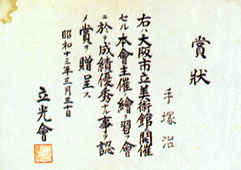 賞狀
手塚治
右ハ大阪市立美術館ニ開催
セル本會主催ノ繪ヲ習フ會
ニ於テ成績優秀ナル事ヲ認
メ賞ヲ贈呈ス
昭和十三年三月三十日
立光會